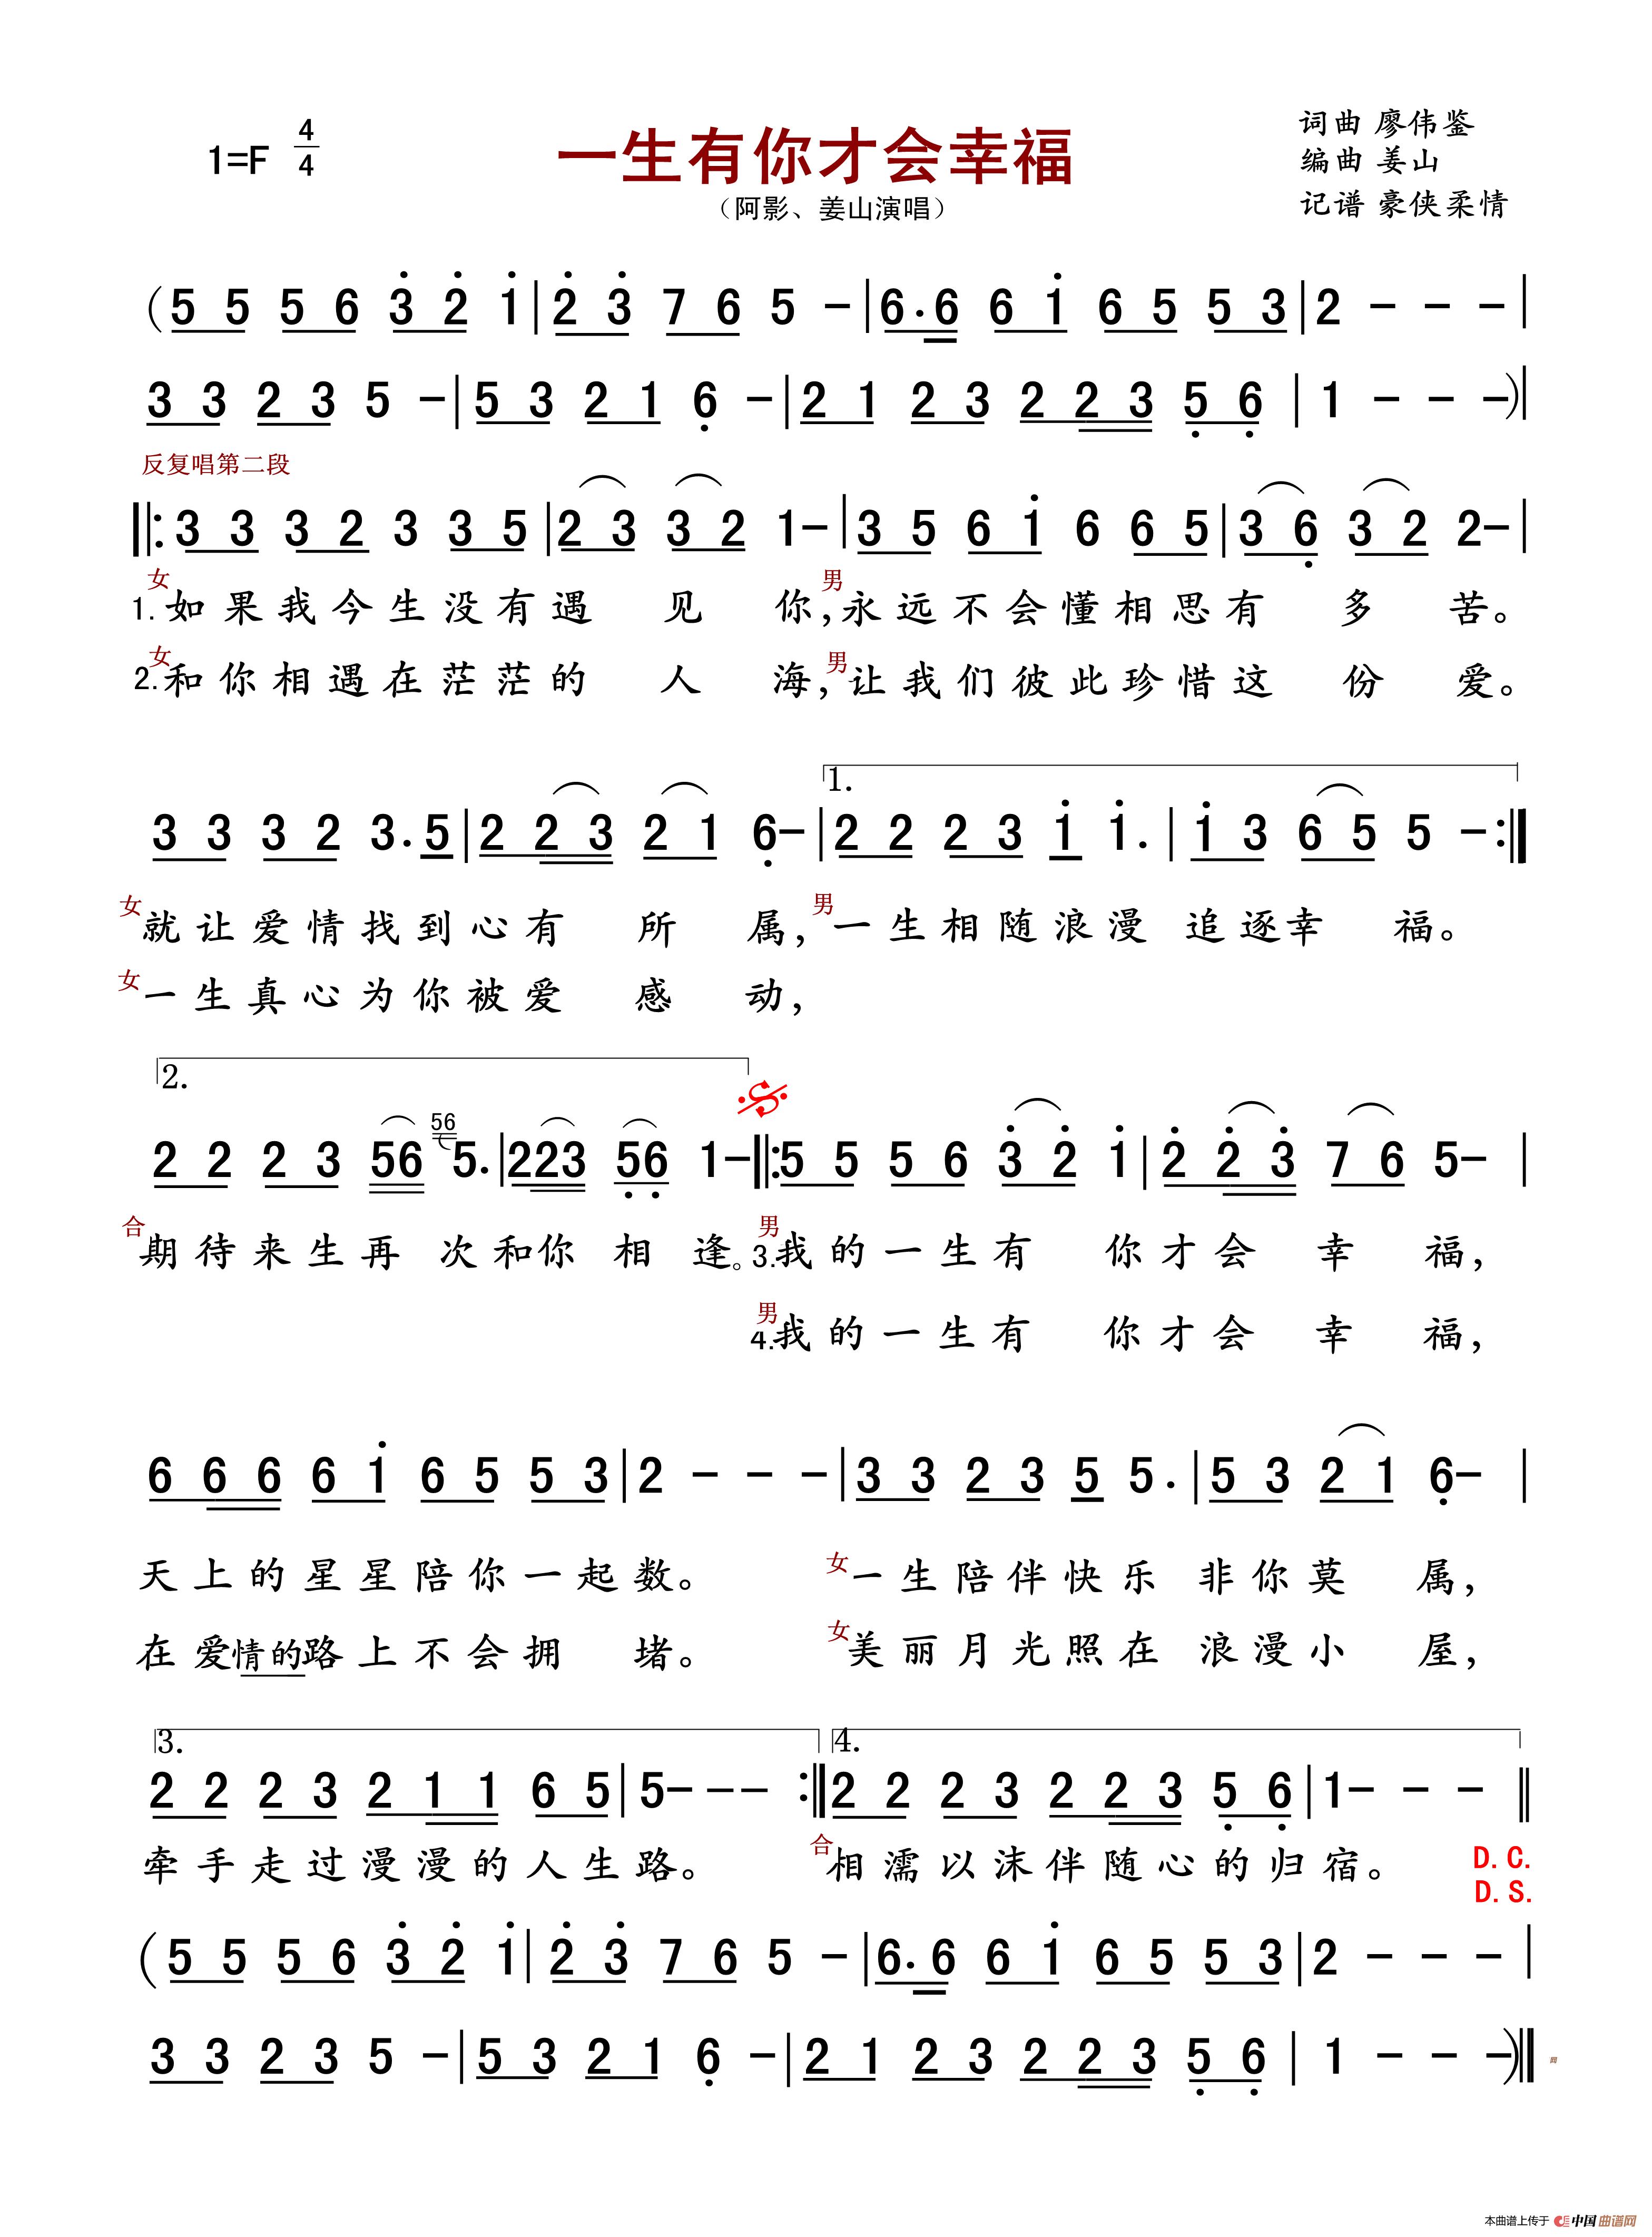 1=F 4/4
一生有你才会幸福
(阿影、姜山演唱)
词曲 廖伟鉴
编曲 姜山
记谱 豪侠柔情
(5 5 5 6 3 2 1 | 2 3 7 6 5 - | 6.6 6 1 6 5 5 3 | 2 - - - |
3 3 2 3 5 - | 5 3 2 1 6 - | 2 1 2 3 2 2 3 5 6 | 1 - - -) |
反复唱第二段
‖: 3 3 3 2 3 3 5 | 2 3 3 2 1- | 3 5 6 1 6 6 5 | 3 6 3 2 2- |
女 男
1.如果我今生没有遇见你,永远不会懂相思有多苦。
女 男
2.和你相遇在茫茫的人海,让我们彼此珍惜这份爱。
1.
3 3 3 2 3. 5 | 2 2 3 2 1 6- | 2 2 2 3 1 1. | 1 3 6 5 5 - :‖
女 男
就让爱情找到心有所属,一生相随浪漫追逐幸福。
女
一生真心为你被爱感动,
2.
2 2 2 3 56 56 5. | 223 56 1- ‖: 5 5 5 6 3 2 1 | 2 2 3 7 6 5- |
合 男
期待来生再次和你相逢。3.我的一生有你才会幸福,
男
4.我的一生有你才会幸福,
6 6 6 6 1 6 5 5 3 | 2 - - - | 3 3 2 3 5 5. | 5 3 2 1 6- |
女
天上的星星陪你一起数。一生陪伴快乐非你莫属,
女
在爱情的路上不会拥堵。美丽月光照在浪漫小屋,
3. 4.
2 2 2 3 2 1 1 6 5 | 5- - - :‖ 2 2 2 3 2 2 3 5 6 | 1- - - ‖
合
牵手走过漫漫的人生路。相濡以沫伴随心的归宿。
D.C.
D.S.
(5 5 5 6 3 2 1 | 2 3 7 6 5 - | 6.6 6 1 6 5 5 3 | 2 - - - |
3 3 2 3 5 - | 5 3 2 1 6 - | 2 1 2 3 2 2 3 5 6 | 1 - - -) ‖
本曲谱上传于 中国曲谱网